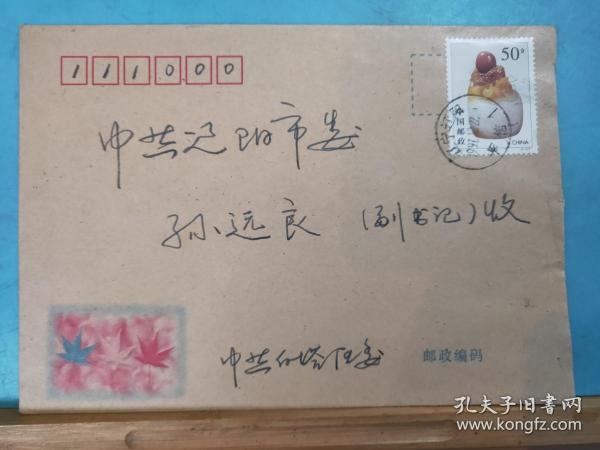 111000
50分
中国邮政
CHINA
中共辽阳市委
孙远良 (副书记)收
中共白塔区委
邮政编码
孔夫子旧书网
kongfz.com